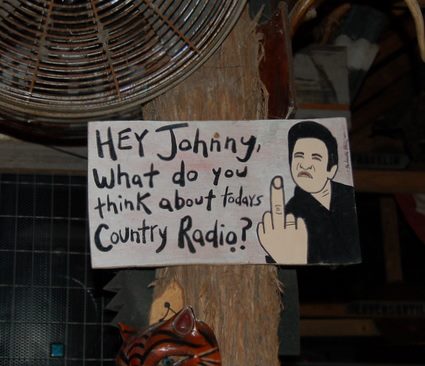 HEY Johnny,
What do you
think about todays
Country Radio?